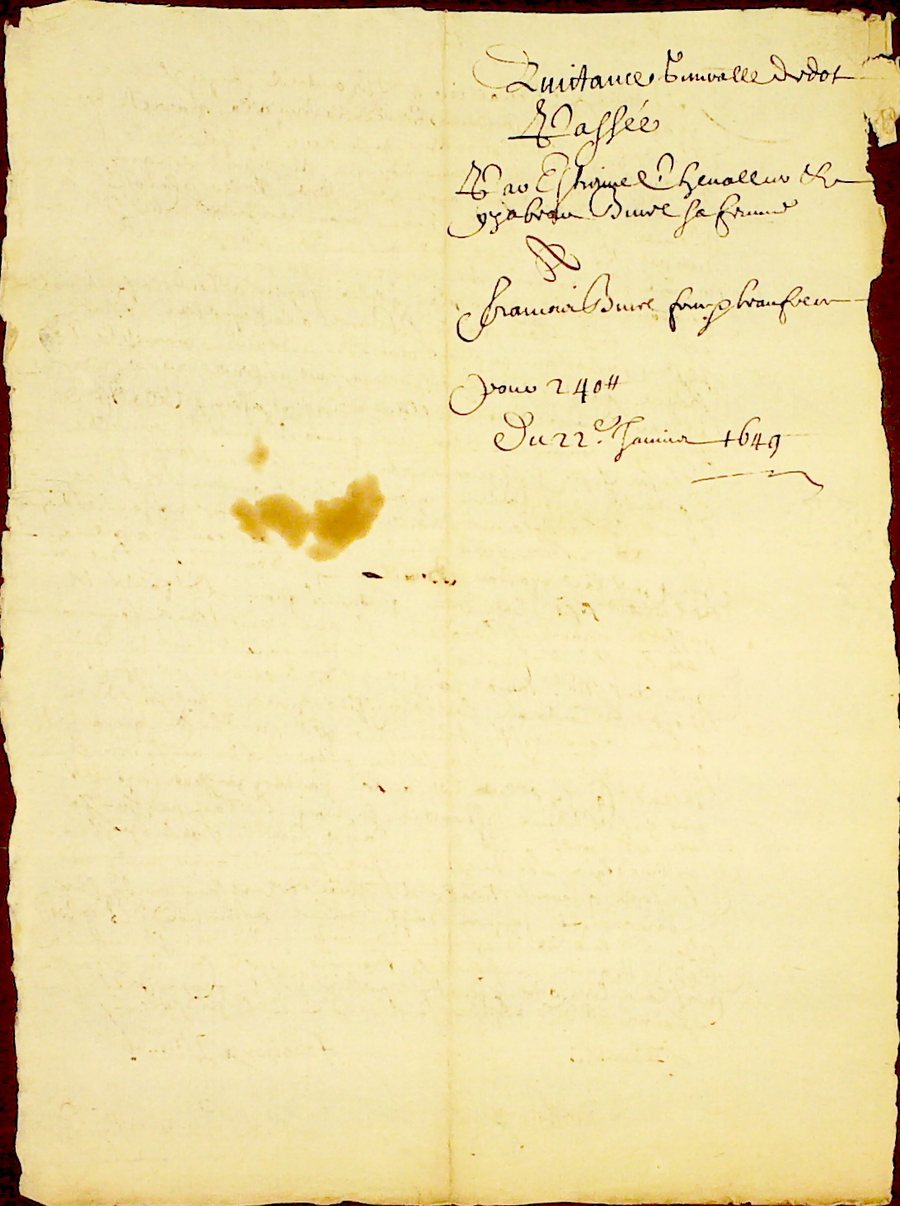 Quittance finalle de dot
Passée
Par Estienne Chevallier &
ysabeau Burel sa femme
A
francois Burel son beaufrere
pour 240 tt
Du 22e Janvier 1649